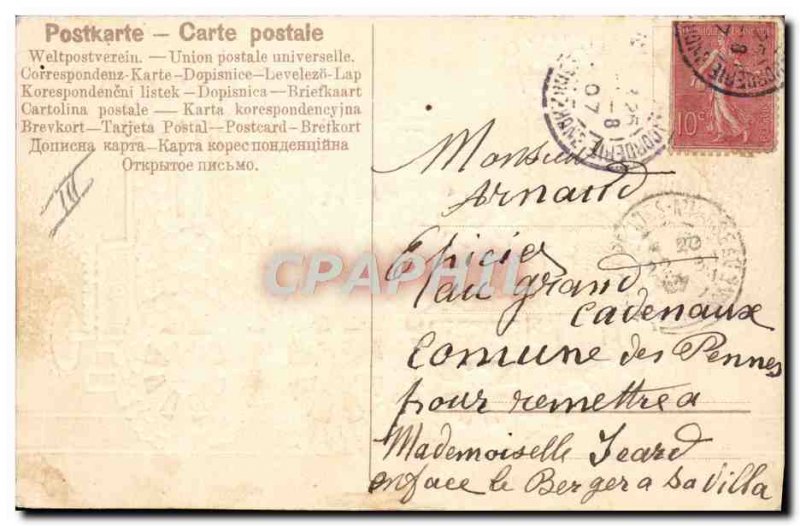 Postkarte — Carte postale
Weltpostverein. — Union postale universelle.
Correspondenz-Karte—Dopisnice—Levelező-Lap
Korespondenční listek—Dopisnica—Briefkaart
Cartolina postale — Karta korespondencyjna
Brevkort—Tarjeta Postal—Postcard—Brefkort
Дописна карта—Карта кореспонденційна
Открытое письмо.
III
10c
07
Monsieur
Arnaud
Epicier
au grand
Cadenaux
Comune des Pennes
pour remettre a
Mademoiselle Icard
enface le Berger a sa villa
CPAPHIL